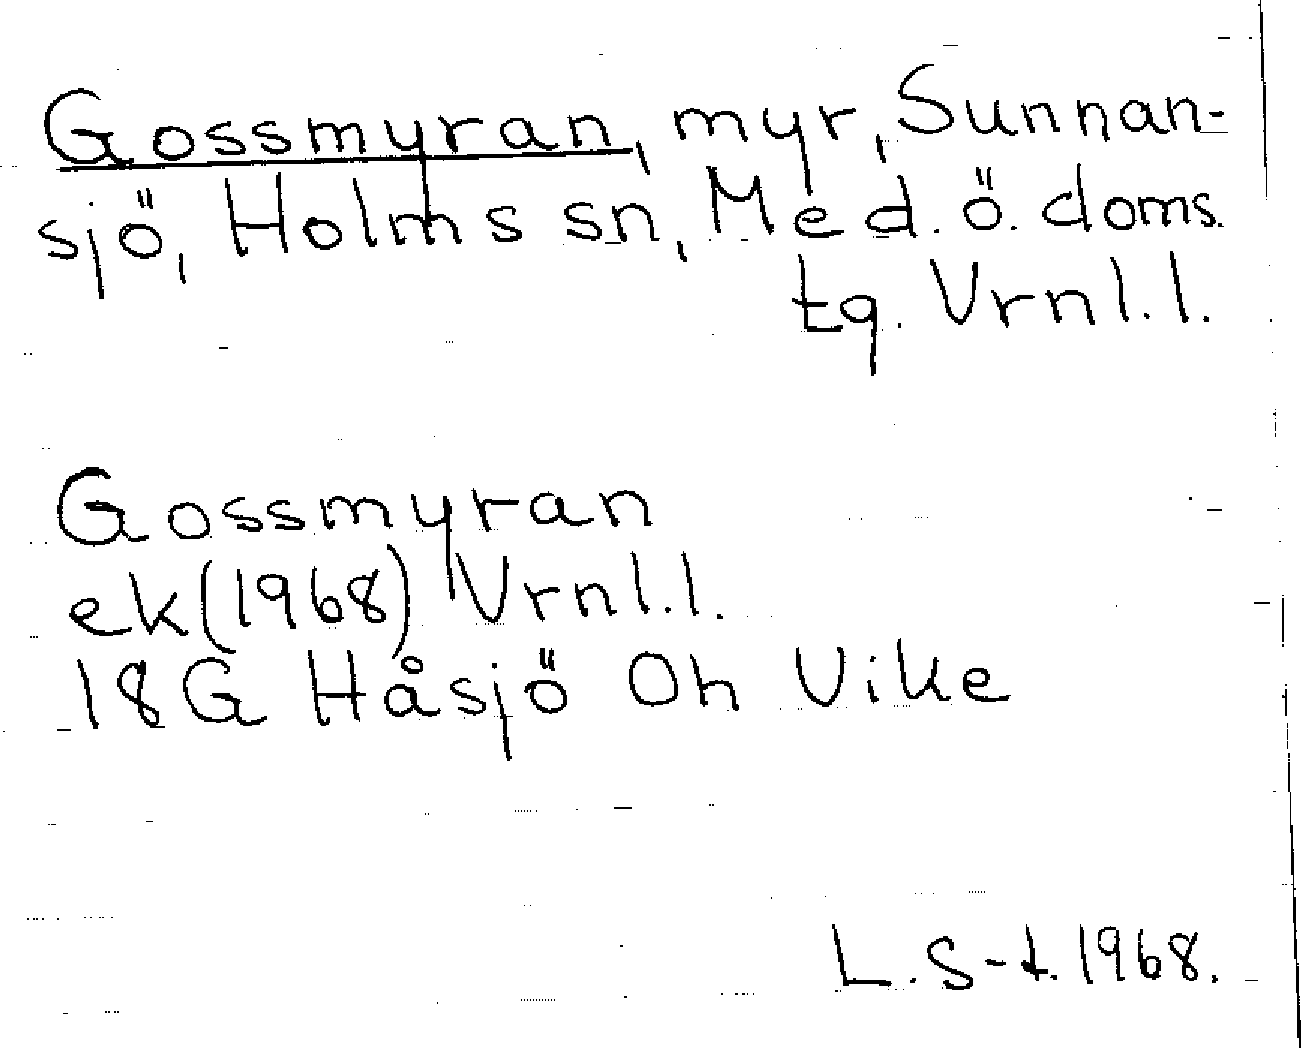 Gossmyran, myr, Sunnan-
sjö, Holms sn, Med. ö. doms.
tg. Vrnl.l.
Gossmyran
ek (1968) Vrnl.l.
18G Håsjö Oh Vike
L. S-t. 1968.